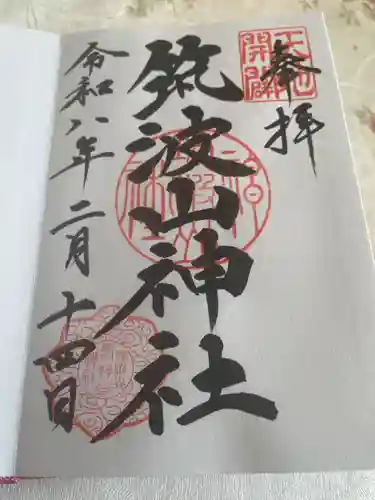 奉拝
天地
開闢
筑波山神社
令和八年二月十四日